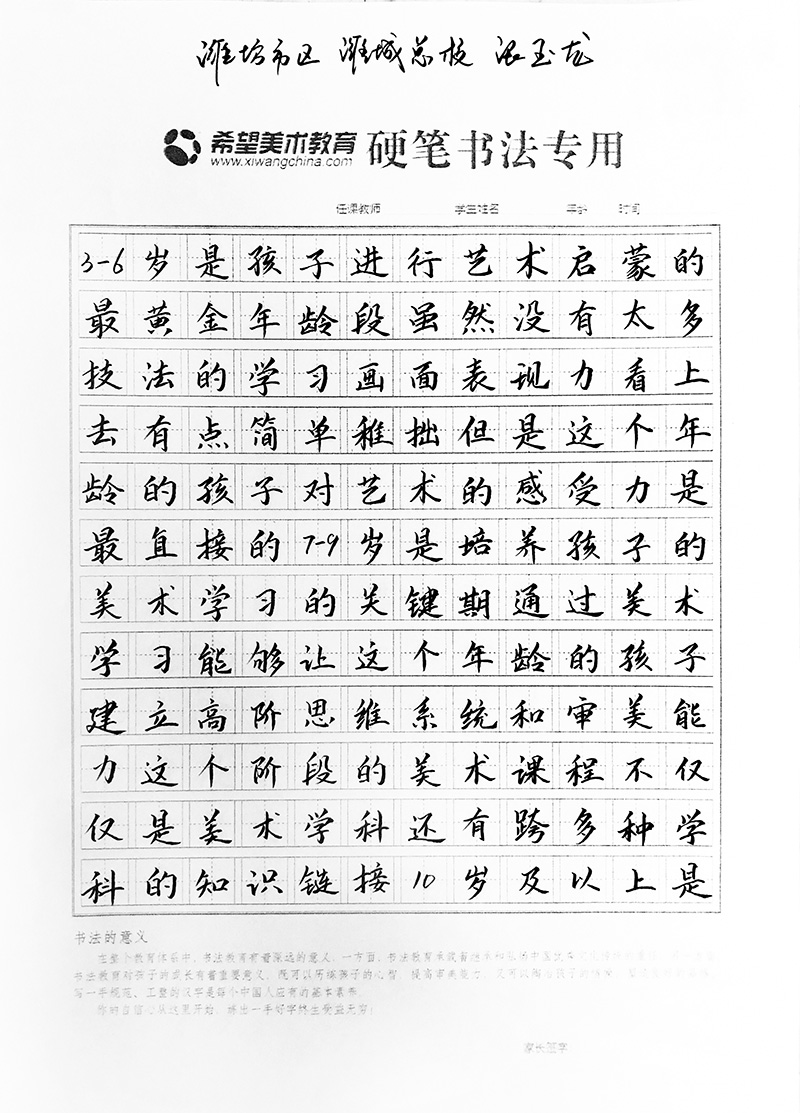 潍坊市区 潍城总校 张玉龙
希望美术教育 硬笔书法专用
www.xiwangchina.com
任课教师 学生姓名 年龄 时间
3-6岁是孩子进行艺术启蒙的
最黄金年龄段虽然没有太多
技法的学习画面表现力看上
去有点简单稚拙但是这个年
龄的孩子对艺术的感受力是
最直接的7-9岁是培养孩子的
美术学习的关键期通过美术
学习能够让这个年龄的孩子
建立高阶思维系统和审美能
力这个阶段的美术课程不仅
仅是美术学科还有跨多种学
科的知识链接10岁及以上是
书法的意义
在整个教育体系中，书法教育有着深远的意义。一方面，书法教育承载着继承和弘扬中国优秀文化
书法教育对孩子的成长有着重要意义，既可以历练孩子的心智，提高审美能力，又可以
写一手规范、工整的汉字是每个中国人应有的基本素养。
你的自信心从这里开始，练出一手好字终生受益无穷！
家长签字